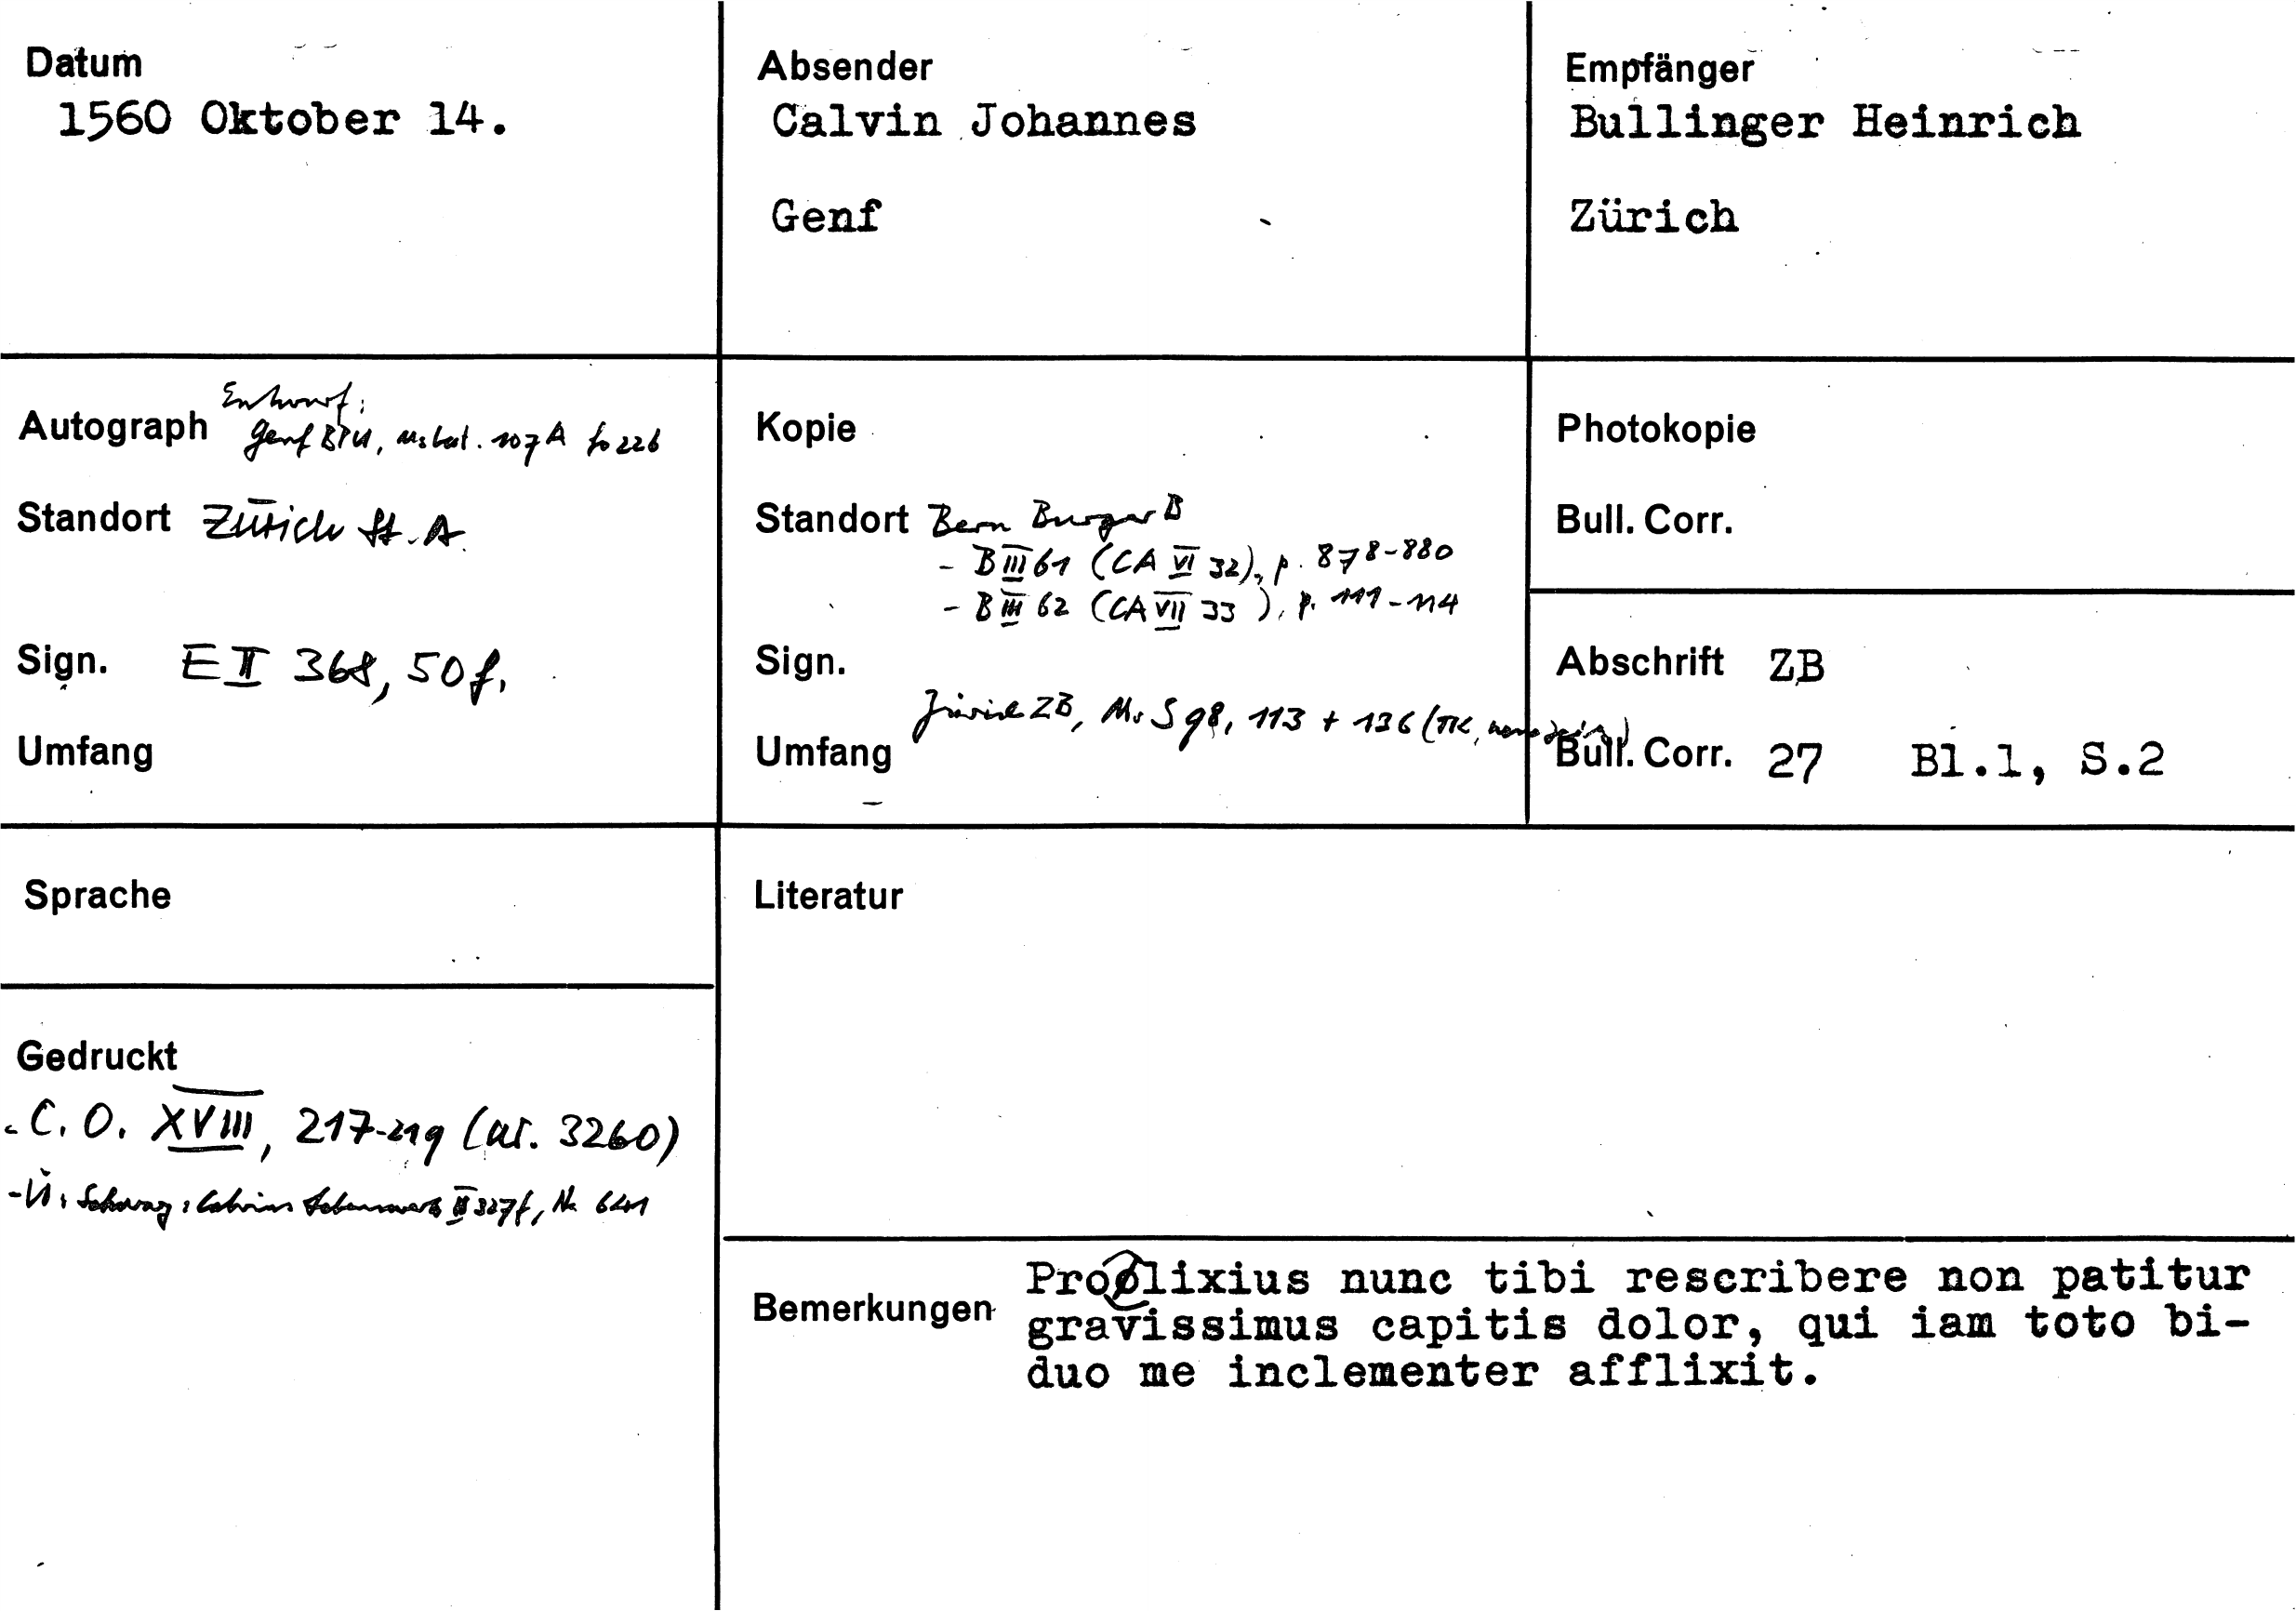 Datum
1560 Oktober 14.
Absender
Calvin Johannes
Genf
Empfänger
Bullinger Heinrich
Zürich
Autograph Entwurf:
Genf BPU, ms lat. 107 A fo 226
Standort Zürich St. A.
Sign. E II 368, 50 f.
Umfang
Kopie
Standort Bern Burger B
- B III 61 (CA VI 32), p. 878-880
- B III 62 (CA VII 33), p. 111-114
Sign.
Zürich ZB, Ms S 98, 113 + 136
Umfang
Photokopie
Bull. Corr.
Abschrift ZB
Bull. Corr. 27 Bl.1, S.2
Sprache
Literatur
Gedruckt
- C. O. XVIII, 217-219 (nr. 3260)
- Ü: Schwarz: Calvins Lebenswerk II 327 f, Nr 641
Bemerkungen
Prolixius nunc tibi rescribere non patitur
gravissimus capitis dolor, qui iam toto bi-
duo me inclementer afflixit.